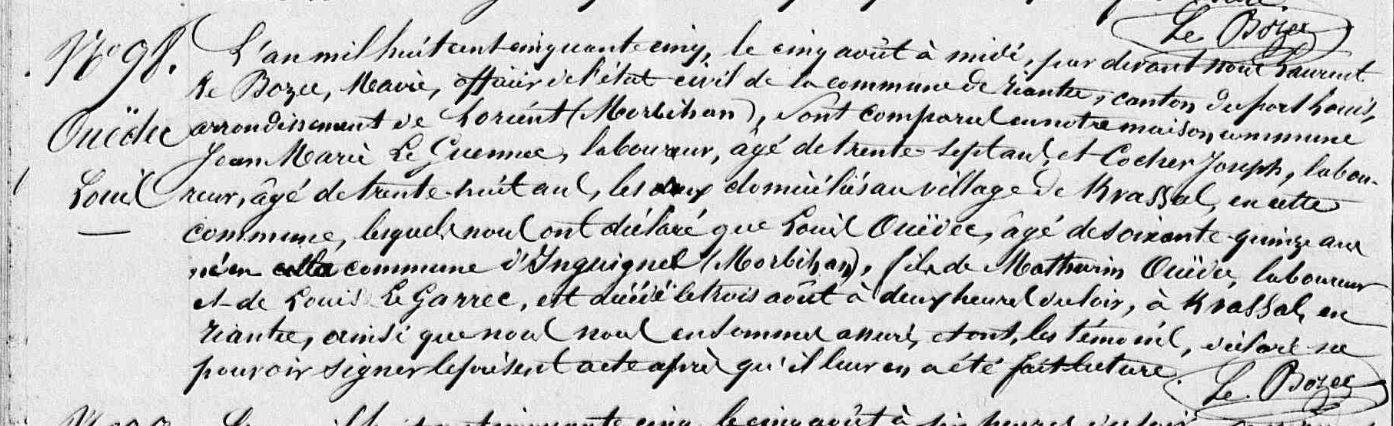 Le Bozec
N° 98. L'an mil huit cent cinquante cinq, le cinq août à midi, par devant nous Laurent
Le Bozec, Maire, officier de l'état civil de la commune de Riantec, canton du port Louis,
Ouëdec arrondissement de Lorient (Morbihan), sont comparus en notre maison commune
Jean Marie Le Guennec, laboureur, âgé de trente sept ans, et Cocher Joseph, labou-
Louis reur, âgé de trente-huit ans, les deux domiciliés au village de Krassal, en cette
commune, lesquels nous ont déclaré que Louis Ouëdec, âgé de soixante-quinze ans
né en commune d'Inguignel (Morbihan), fils de Mathurin Ouëdec, laboureur
et de Louise Le Garrec, est décédé le trois août à deux heures du soir, à Krassal, en
Riantec, ainsi que nous nous en sommes assuré, et ont, les témoins, déclaré ne
pouvoir signer le présent acte après qu'il leur en a été fait lecture.
Le Bozec
le cinq août à six heures du soir